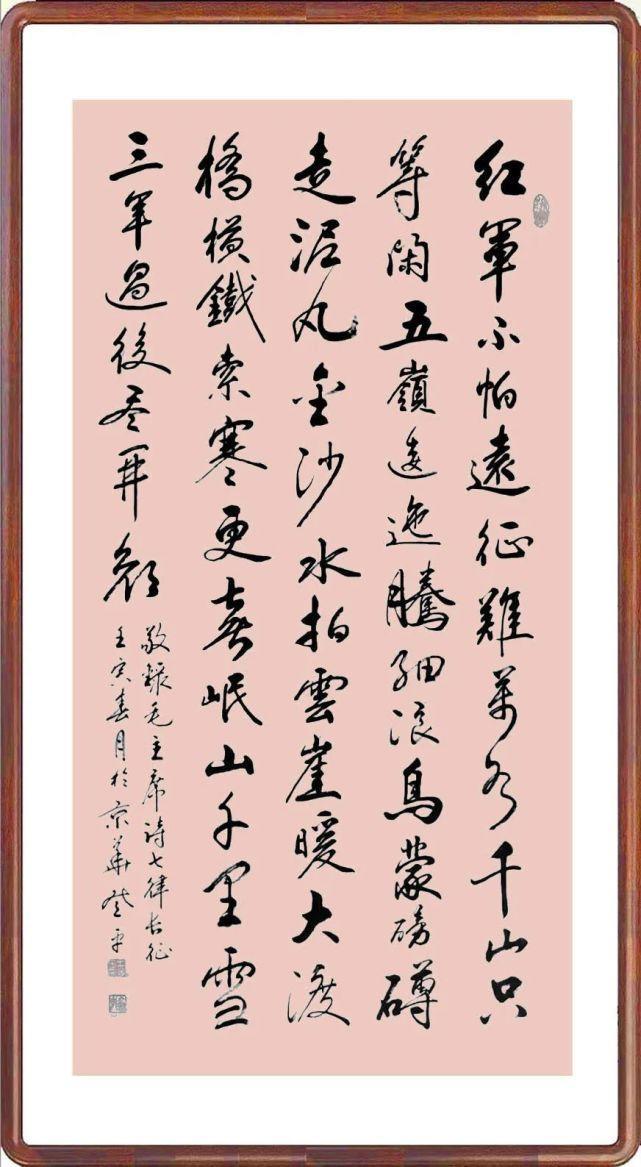 红軍不怕遠征難萬水千山只
等閑五嶺逶迤騰細浪烏蒙磅礴
走泥丸金沙水拍雲崖暖大渡
橋橫鐵索寒更喜岷山千里雪
三軍過後尽開顔
敬録毛主席詩七律長征
壬寅春月於京華